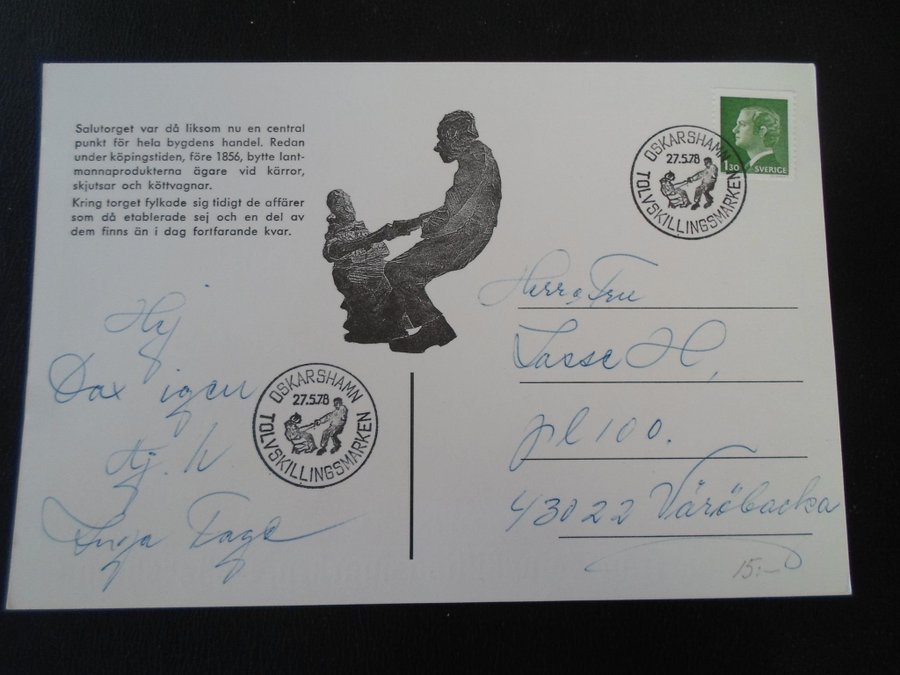 Salutorget var då liksom nu en central
punkt för hela bygdens handel. Redan
under köpingstiden, före 1856, bytte lant-
mannaprodukterna ägare vid kärror,
skjutsar och köttvagnar.
Kring torget fylkade sig tidigt de affärer
som då etablerade sej och en del av
dem finns än i dag fortfarande kvar.
Hej
Dax igen
Inga Tage
OSKARSHAMN
27.5.78
TOLVSKILLINGSMARKEN
1.30 SVERIGE
OSKARSHAMN
27.5.78
TOLVSKILLINGSMARKEN
Herr o Fru
Lasse H,
pl 100.
43022 Väröbacka
15:-